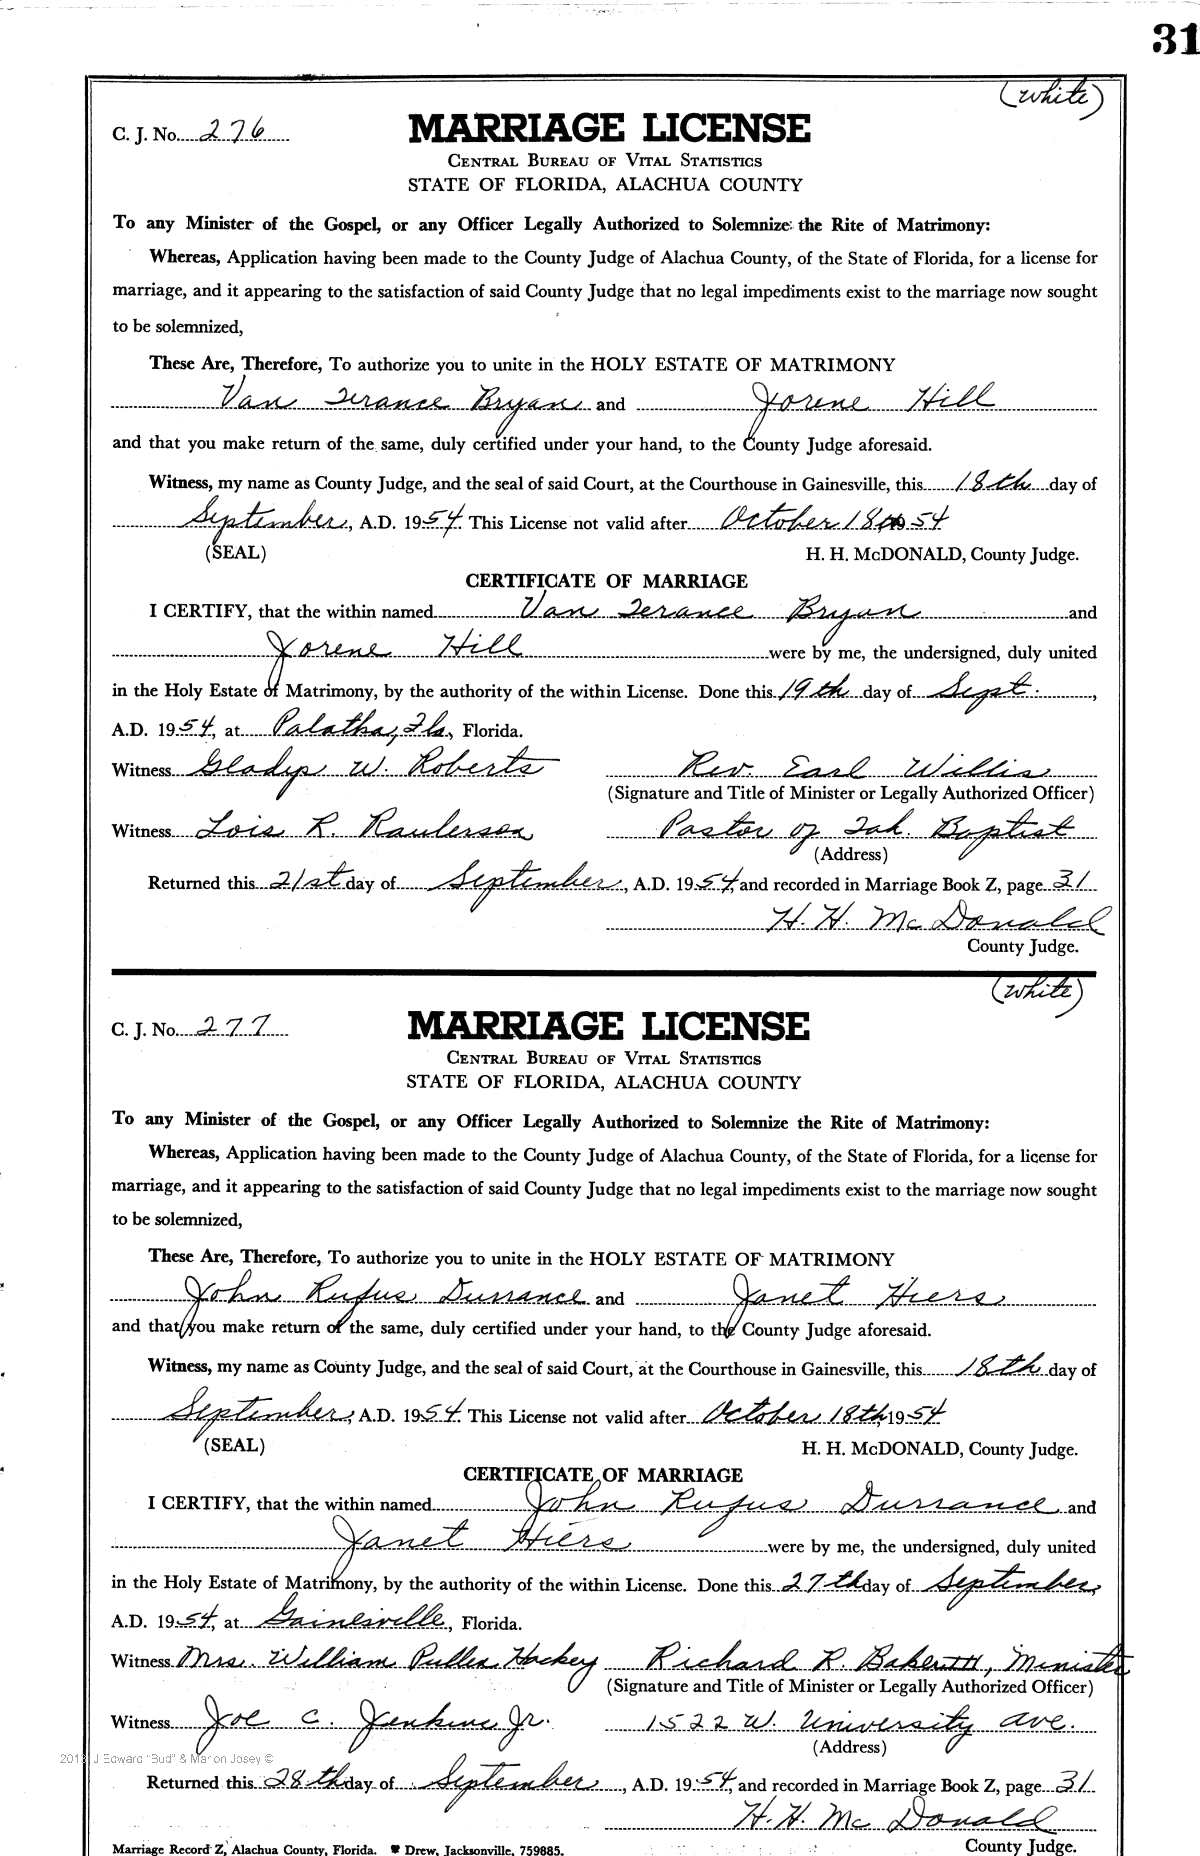 31
(White)
C. J. No. 276
MARRIAGE LICENSE
CENTRAL BUREAU OF VITAL STATISTICS
STATE OF FLORIDA, ALACHUA COUNTY
To any Minister of the Gospel, or any Officer Legally Authorized to Solemnize the Rite of Matrimony:
Whereas, Application having been made to the County Judge of Alachua County, of the State of Florida, for a license for
marriage, and it appearing to the satisfaction of said County Judge that no legal impediments exist to the marriage now sought
to be solemnized,
These Are, Therefore, To authorize you to unite in the HOLY ESTATE OF MATRIMONY
Van Terance Bryan and Jorene Hill
and that you make return of the same, duly certified under your hand, to the County Judge aforesaid.
Witness, my name as County Judge, and the seal of said Court, at the Courthouse in Gainesville, this 18th day of
September, A.D. 1954. This License not valid after October 18th 54
(SEAL) H. H. McDONALD, County Judge.
CERTIFICATE OF MARRIAGE
I CERTIFY, that the within named Van Terance Bryan and
Jorene Hill were by me, the undersigned, duly united
in the Holy Estate of Matrimony, by the authority of the within License. Done this 19th day of Sept.,
A.D. 1954, at Palatka, Fla., Florida.
Witness Gladys W. Roberts Rev. Earl Willis
(Signature and Title of Minister or Legally Authorized Officer)
Witness Lois R. Raulerson Pastor of Baptist
(Address)
Returned this 21st day of September, A.D. 1954, and recorded in Marriage Book Z, page 31
H. H. McDonald
County Judge.
(White)
C. J. No. 277
MARRIAGE LICENSE
CENTRAL BUREAU OF VITAL STATISTICS
STATE OF FLORIDA, ALACHUA COUNTY
To any Minister of the Gospel, or any Officer Legally Authorized to Solemnize the Rite of Matrimony:
Whereas, Application having been made to the County Judge of Alachua County, of the State of Florida, for a license for
marriage, and it appearing to the satisfaction of said County Judge that no legal impediments exist to the marriage now sought
to be solemnized,
These Are, Therefore, To authorize you to unite in the HOLY ESTATE OF MATRIMONY
John Rufus Durrance and Janet Hiers
and that you make return of the same, duly certified under your hand, to the County Judge aforesaid.
Witness, my name as County Judge, and the seal of said Court, at the Courthouse in Gainesville, this 18th day of
September, A.D. 1954. This License not valid after October 18th, 1954
(SEAL) H. H. McDONALD, County Judge.
CERTIFICATE OF MARRIAGE
I CERTIFY, that the within named John Rufus Durrance and
Janet Hiers were by me, the undersigned, duly united
in the Holy Estate of Matrimony, by the authority of the within License. Done this 27th day of September,
A.D. 1954, at Gainesville, Florida.
Witness Mrs. William Pullen Hackey Richard R. Baker III, Minister
(Signature and Title of Minister or Legally Authorized Officer)
Witness Joe C. Jenkins Jr. 1522 W. University Ave.
(Address)
2013 J Edward "Bud" & Marion Josey ©
Returned this 28th day of September, A.D. 1954, and recorded in Marriage Book Z, page 31
H. H. McDonald
County Judge.
Marriage Record Z, Alachua County, Florida. Drew, Jacksonville, 759885.